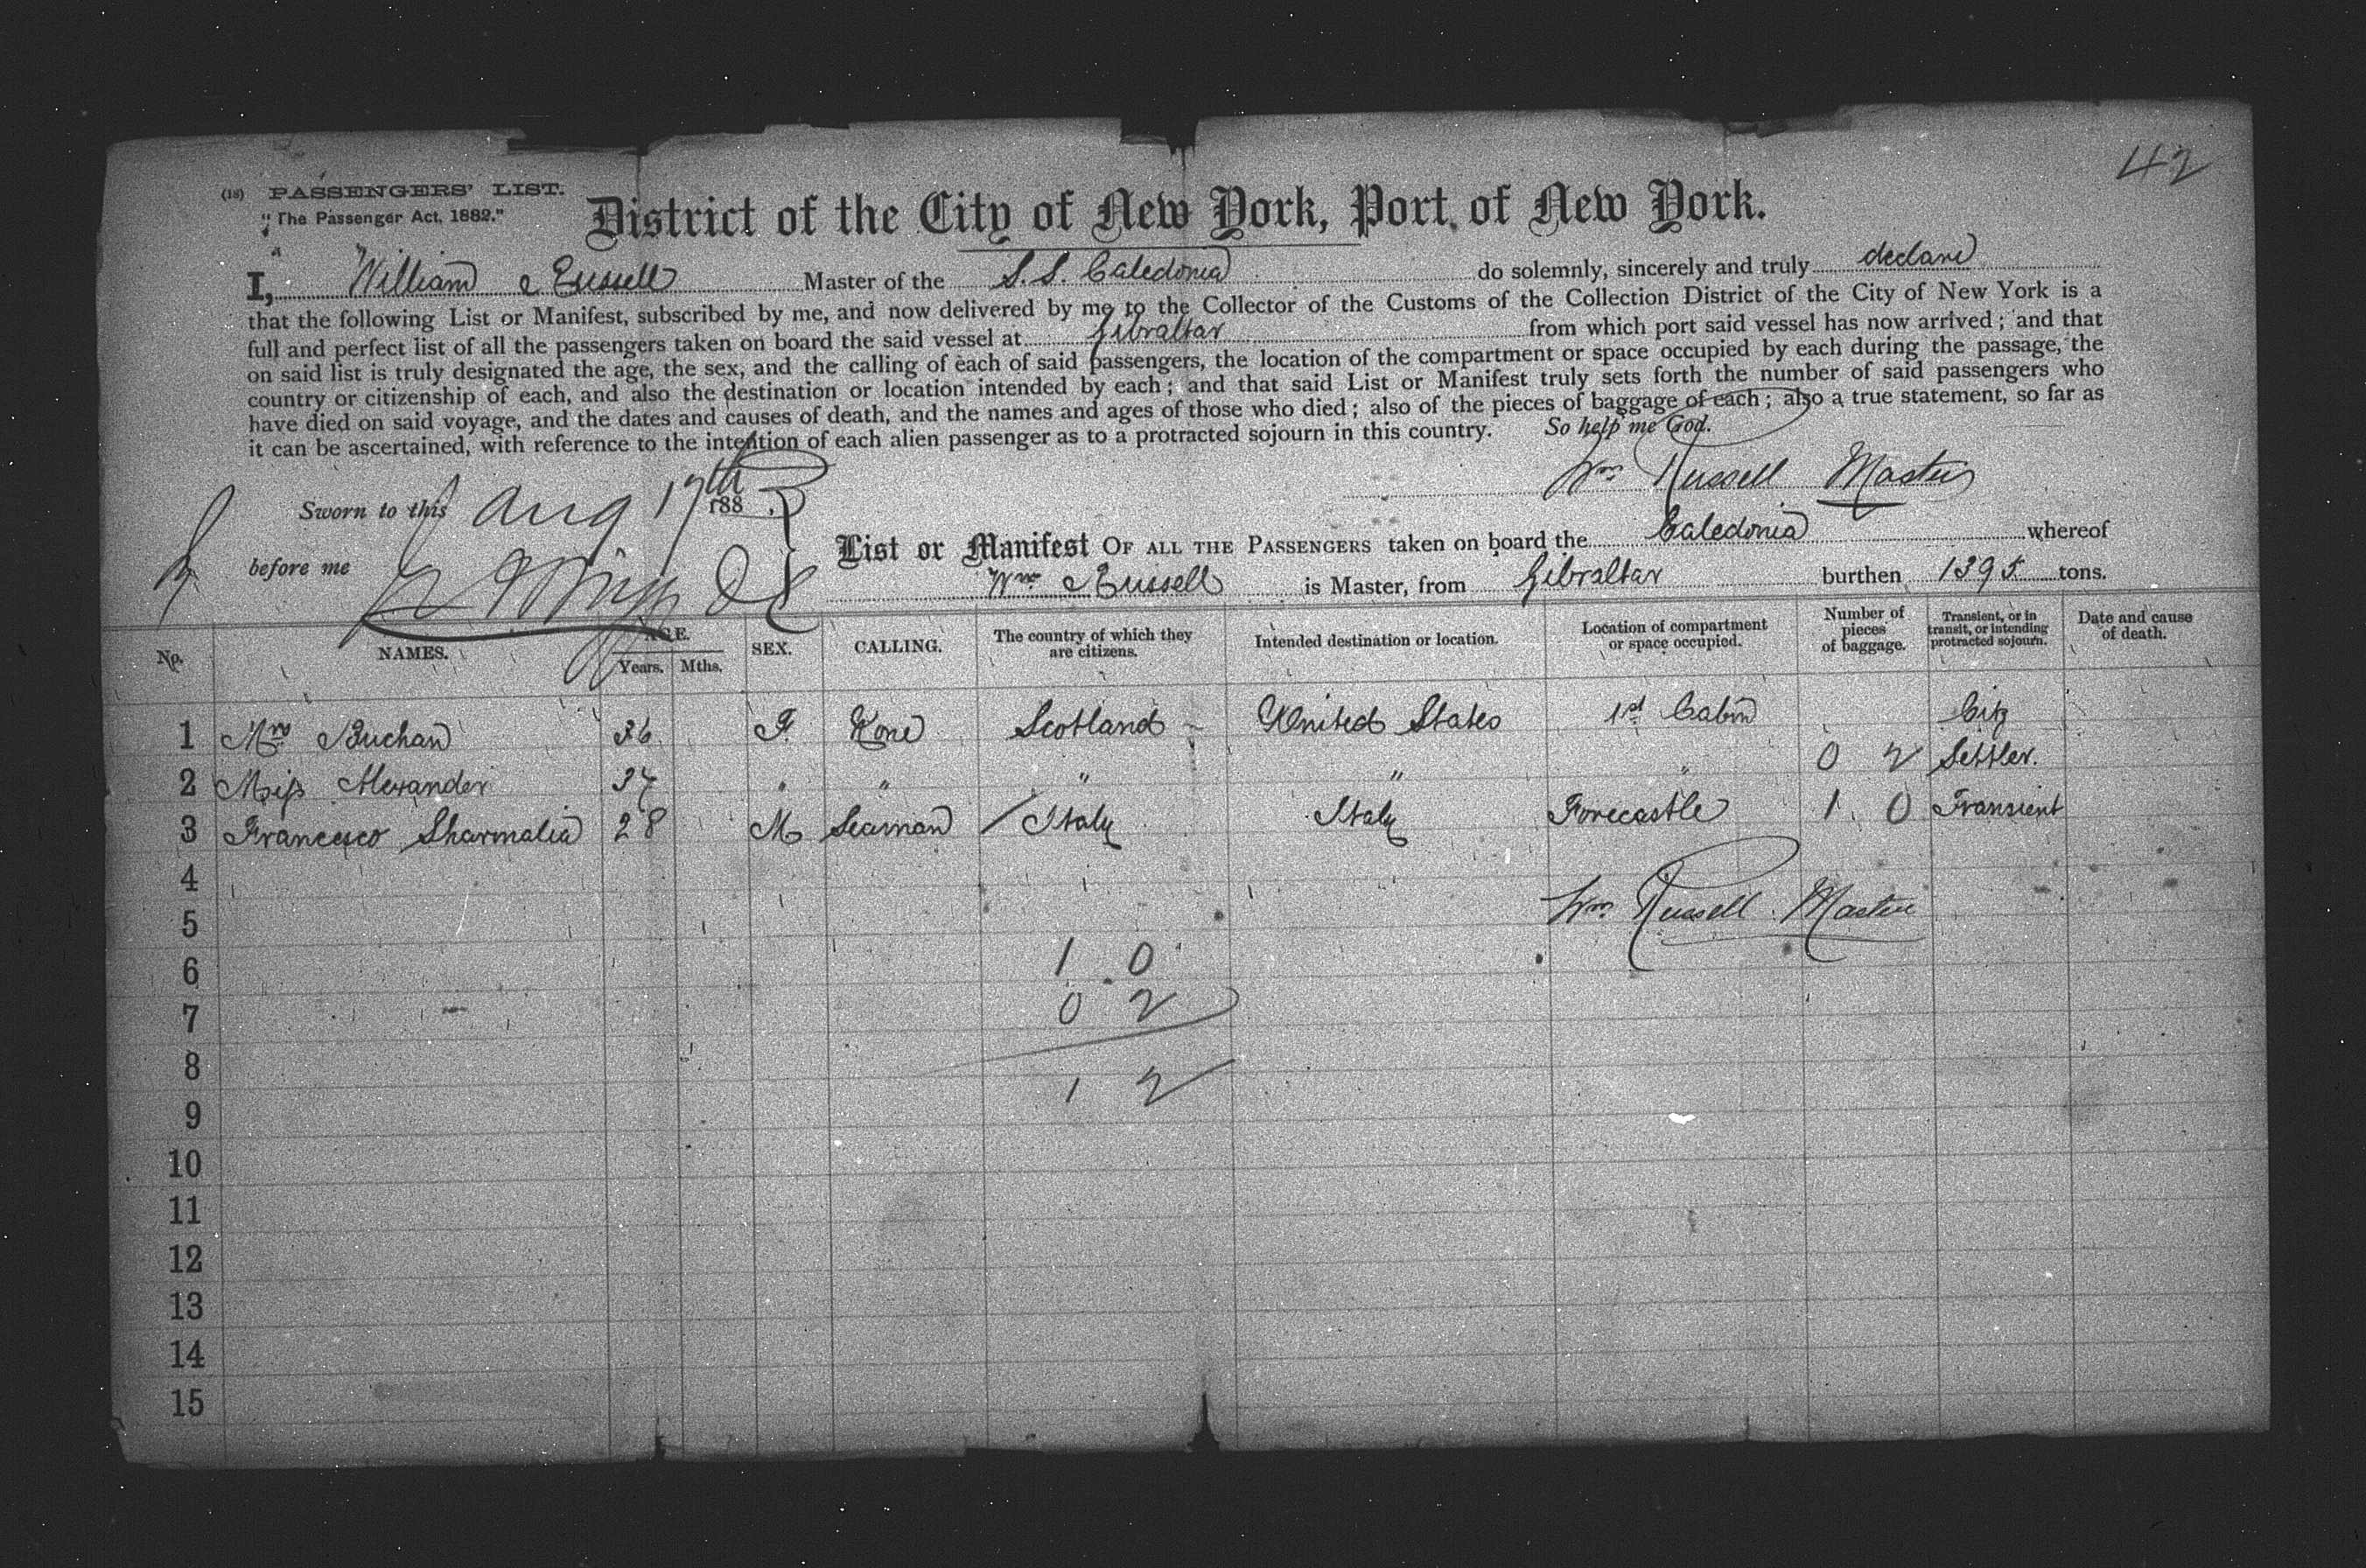 42
(18) PASSENGERS' LIST.
"The Passenger Act, 1882."
District of the City of New York, Port of New York.
I, William Russell Master of the S.S. Caledonia do solemnly, sincerely and truly declare
that the following List or Manifest, subscribed by me, and now delivered by me to the Collector of the Customs of the Collection District of the City of New York is a
full and perfect list of all the passengers taken on board the said vessel at Gibraltar from which port said vessel has now arrived; and that
on said list is truly designated the age, the sex, and the calling of each of said passengers, the location of the compartment or space occupied by each during the passage, the
country or citizenship of each, and also the destination or location intended by each; and that said List or Manifest truly sets forth the number of said passengers who
have died on said voyage, and the dates and causes of death, and the names and ages of those who died; also of the pieces of baggage of each; also a true statement, so far as
it can be ascertained, with reference to the intention of each alien passenger as to a protracted sojourn in this country. So help me God.
Wm Russell Master
Sworn to this Aug 17th 188 ,
before me
List or Manifest OF ALL THE PASSENGERS taken on board the Caledonia whereof
Wm Russell is Master, from Gibraltar burthen 1395 tons.
No. NAMES. AGE. Years. Mths. SEX. CALLING. The country of which they are citizens. Intended destination or location. Location of compartment or space occupied. Number of pieces of baggage. Transient, or in transit, or intending protracted sojourn. Date and cause of death.
1 Mrs Buchan 36 F. None Scotland United States 1st Cabin Citz
2 Miss Alexander 37 " " " " " 0 2 Settler.
3 Francesco Sharmalia 28 M Seaman / Italy Italy Forecastle 1 0 Transient
4
5 Wm Russell Master
6 1 0
7 0 2
8
9 1 2
10
11
12
13
14
15